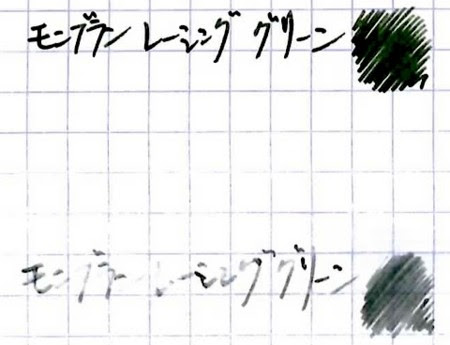 モンブラン レーシング グリーン
モンブラン レーシング グリーン